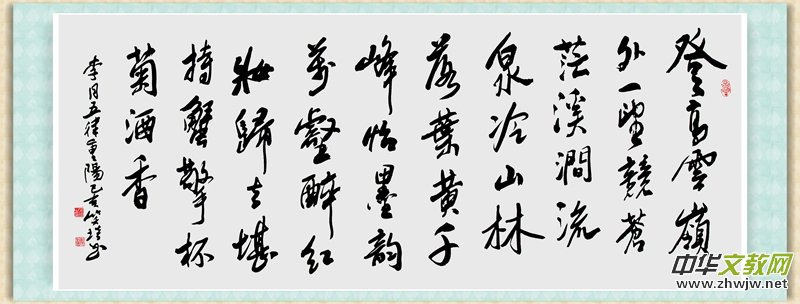 登高雲嶺
外一望競蒼
茫溪澗流
泉冷山林
落葉黃千
峰怡墨韵
萬壑醉紅
妝歸去堪
持蟹擎杯
菊酒香
李月五律重陽己亥
中华文教网
www.zhwjw.net